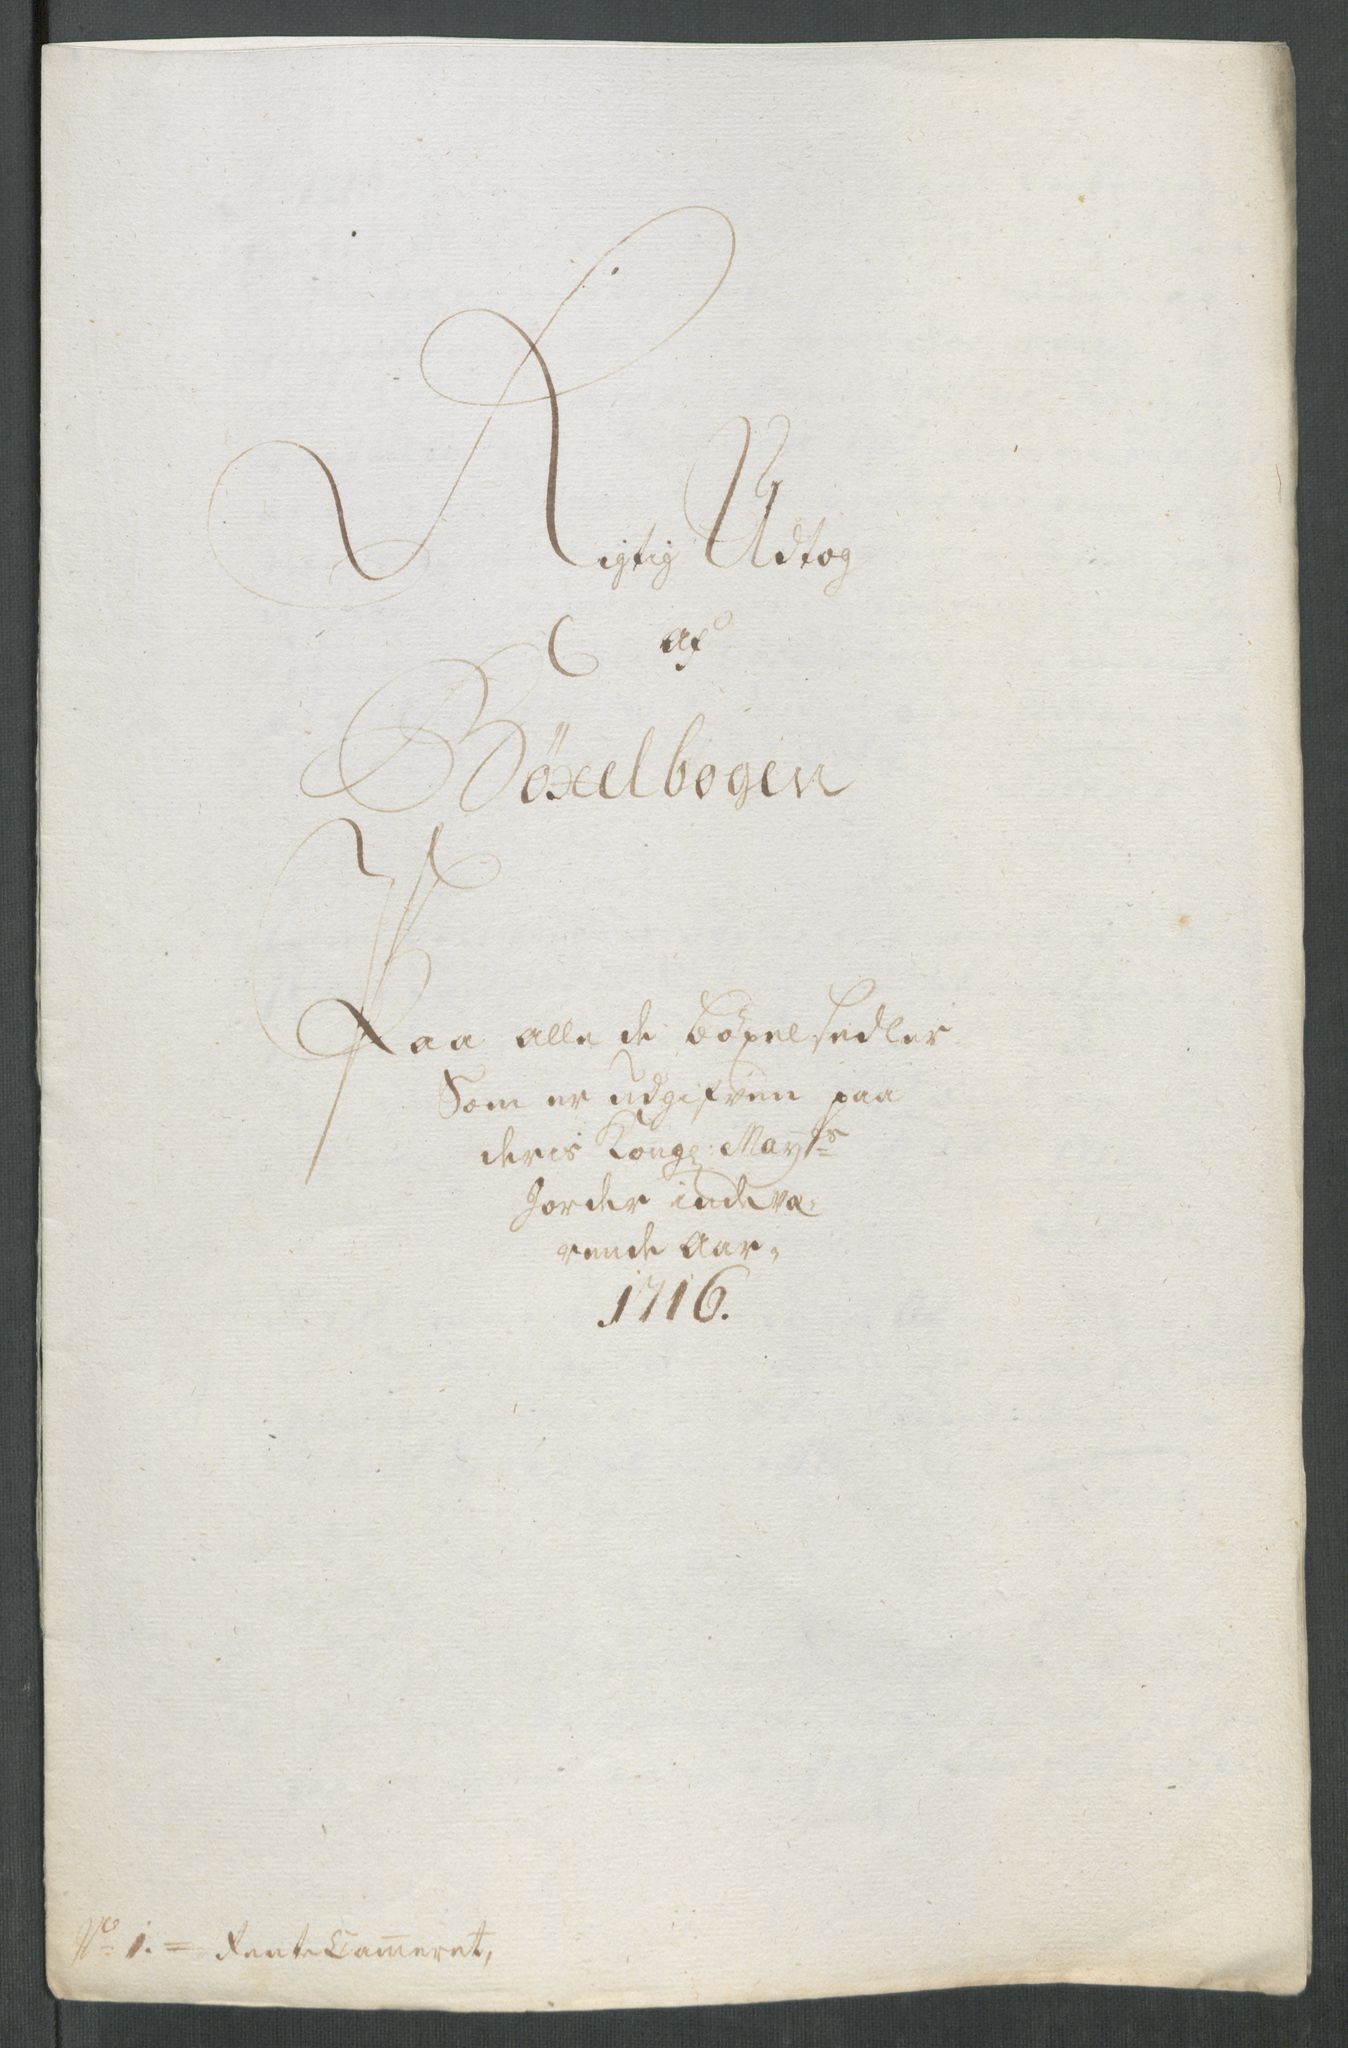 Rigtig Udtog
af
Böxelbogen
Paa alle de böxelsedler
Som er udgifven paa
deris Kongl: Mayts
Jorder indeva-
rende Aar,
1716.
No 1. = RenteCam̄eret,